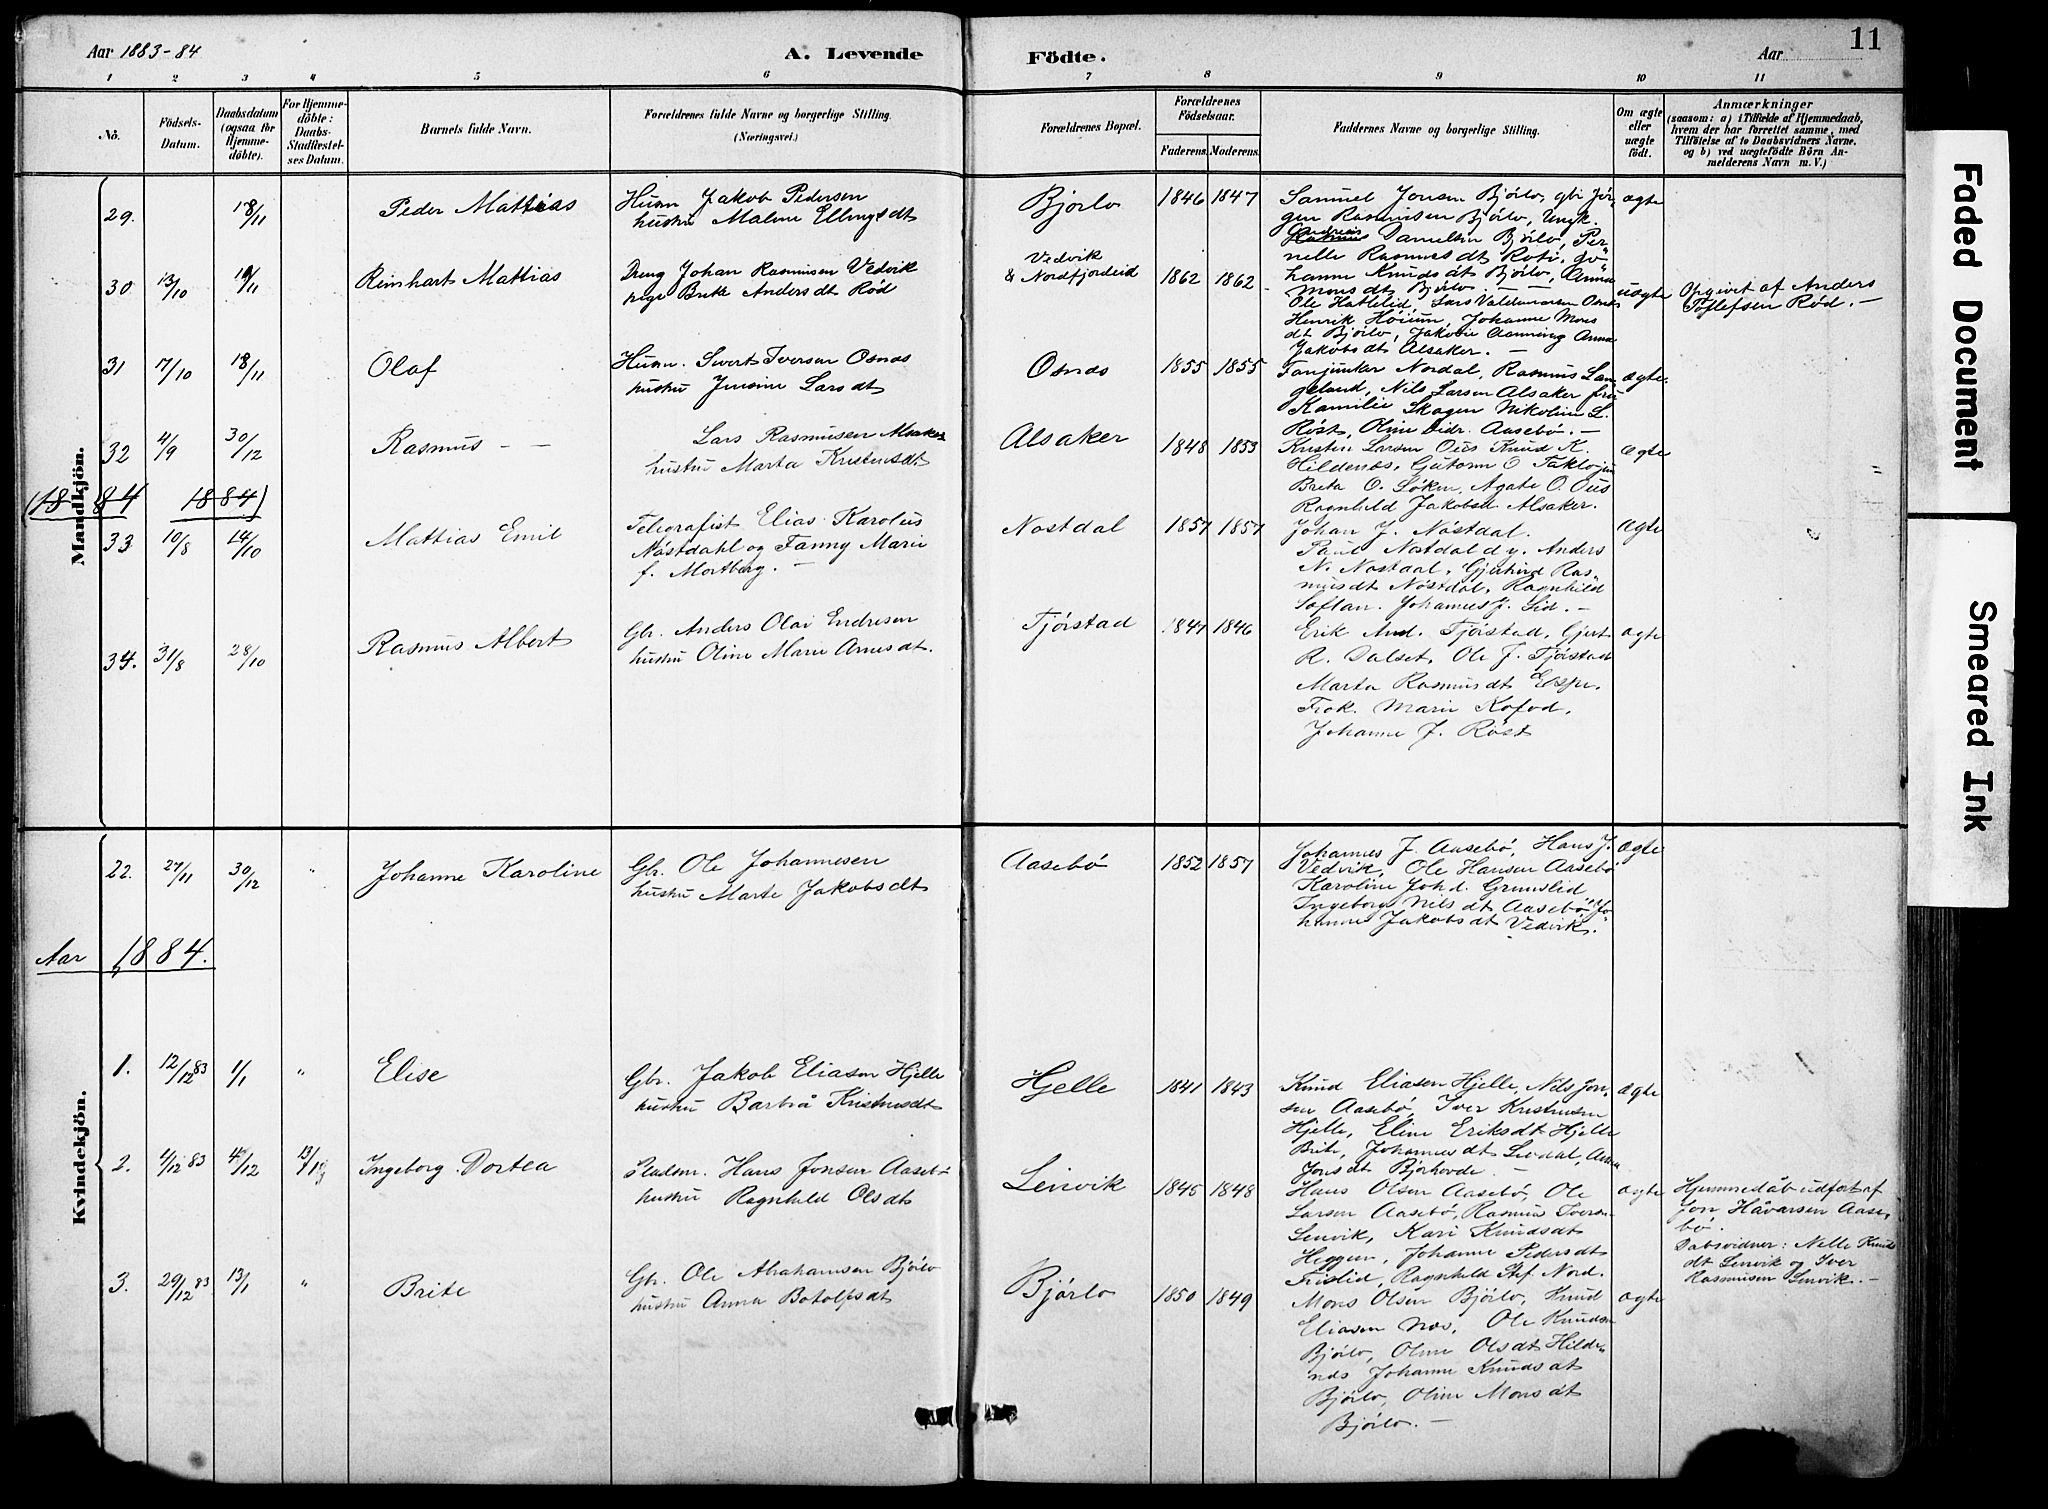 Aar 1883-84
A. Levende
Födte.
Aar
11
1 2 3 4 5 6 7 8 9 10 11
No.
Födsels-
Datum.
Daabsdatum
(ogsaa for
Hjemme-
döbte).
For Hjemme-
döbte:
Daabs-
Stadfæstel-
ses Datum.
Barnets fulde Navn.
Forældrenes fulde Navne og borgerlige Stilling.
(Næringsvei.)
Forældrenes Bopæl.
Forældrenes
Födselsaar.
Faderens. Moderens.
Faddernes Navne og borgerlige Stilling.
Om ægte
eller
uægte
födt.
Anmærkninger
(saasom: a) i Tilfælde af Hjemmedaab,
hvem der har forrettet samme, med
Tilföielse af to Daabsvidners Navne.
og b) ved uægtefödte Börn An-
melderens Navn m. V.)
Mandkjön.
29. 18/11 Peder Mattias
Husm Jakob Pedersen
hustru Malene Ellingsdt
Bjørlo 1846 1847
Samuel Jonsen Bjørlo, gbr Jör-
gen Rasmusen Bjørlo, Ungk.
Andreas
Danielsen Bjørlo, Per-
nelle Rasmusdt Roti, Jo-
hanne Knudsdt Bjørlo, Anna
Monsdt Bjørlo.
ægte
30 13/10 19/11 Reinhart Mattias
Dreng Johan Rasmusen Vedvik
pige Brita Andersdt Rød
Vedvik
& Nordfjordeid
1862 1862
Ole Hatlelid, Lars Valdemarsen Osnes
Henrik Høium, Johanne Mons
dt Bjørlo, Jakobie Aanning Anna
Jakobsdt Alsaker. —
uægte
Opgivet af Anders
Tollefsen Rød. —
31 17/10 18/11 Olaf
Husm. Sivert Iversen Osnes
hustru Jensine Larsdt
Osnes 1855 1855
Fanejunker Nordal, Rasmus Lan-
geland, Nils Larsen Alsaker fru
Kamilie Skagen Nikoline L.
Røst, Oline Didr. Aasebø. —
ægte
32 4/9 30/12 Rasmus — —
Lars Rasmusen Alsaker
hustru Marta Kristensdt
Alsaker 1848 1853
Kristen Larsen Ous Knud K.
Hildenæs, Gutorm O
Brita O. Løken, Agate O. Ous
Ragnhild Jakobsd Alsaker.
ægte
(1884 1884)
33 10/8 14/10 Mattias Emil
Telegrafist Elias Karolus
Nøstdahl og Fanny Marie
f. Mortberg. —
Nøstdal 1857 1857
Johan J. Nøstdal.
Paul Nøstdal d.y. Anders
N. Nøstdal, Gjertrud Ras-
musdt Nøstdal, Ragnhild
Johannes J. Lid. —
ægte
34. 31/8 28/10 Rasmus Albert
Gbr. Anders Olai Endresen
hustru Oline Marie Arnesdt.
Tjørstad 1847 1846
Erik And. Tjørstad, Gjert
R. Dalset, Ole J. Tjørstad
Marta Rasmusdt Espe,
Frøk. Marie Kofod,
Johanne J. Røst
ægte
Kvindekjön.
22. 27/11 30/12 " Johanne Karoline
Gbr. Ole Johannesen
hustru Marte Jakobsdt
Aasebø 1852 1857
Johannes J. Aasebø, Hans J.
Vedvik, Ole Hansen Aasebø
Karoline Joh d. Grunslid
Ingeborg Nilsdt Aasebø Jo-
hanne Jakobsdt Vedvik.
ægte
Aar 1884.
1. 12/12 83 1/1 " Elise
Gbr. Jakob Eliasen Hjelle
hustru Barbrå Kristensdt
Hjelle 1841 1843
Knud Eliasen Hjelle, Nils Jon-
sen Aasebø, Iver Kristensen
Hjelle, Eline Eriksdt Hjelle
Brite Johannesdt Levdal, Anna
Jonsdt Bjørhovde. —
ægte
2. 4/12 83 4/12 13/1 Ingeborg Dortea
Pladsm. Hans Jonsen Aasebø
hustru Ragnhild Olsdt
Lenvik 1845 1848
Hans Olsen Aasebø, Ole
Larsen Aasebø, Rasmus Iversen
Lenvik, Kari Knudsdt
Heggen, Johanne Pedersdt
Frislid, Ragnhild Stef. Nord.
ægte
Hjemmedåb udført af
Jon Håvarsen Aase-
bø.
Dabsvidner: Nelle Knuds
dt Lenvik og Iver
Rasmusen Lenvik. —
3. 29/12 83 13/1 " Brite
Gbr. Ole Abrahamsen Bjørlo
hustru Anna Botolfsdt
Bjørlo 1850 1849
Mons Olsen Bjørlo, Knud
Eliasen Nos, Ole Knudsen
Bjørlo, Oline Olsdt Hilde-
nes Johanne Knudsdt
Bjørlo, Oline Monsdt
Bjørlo. —
ægte
Faded Document
Smeared Ink